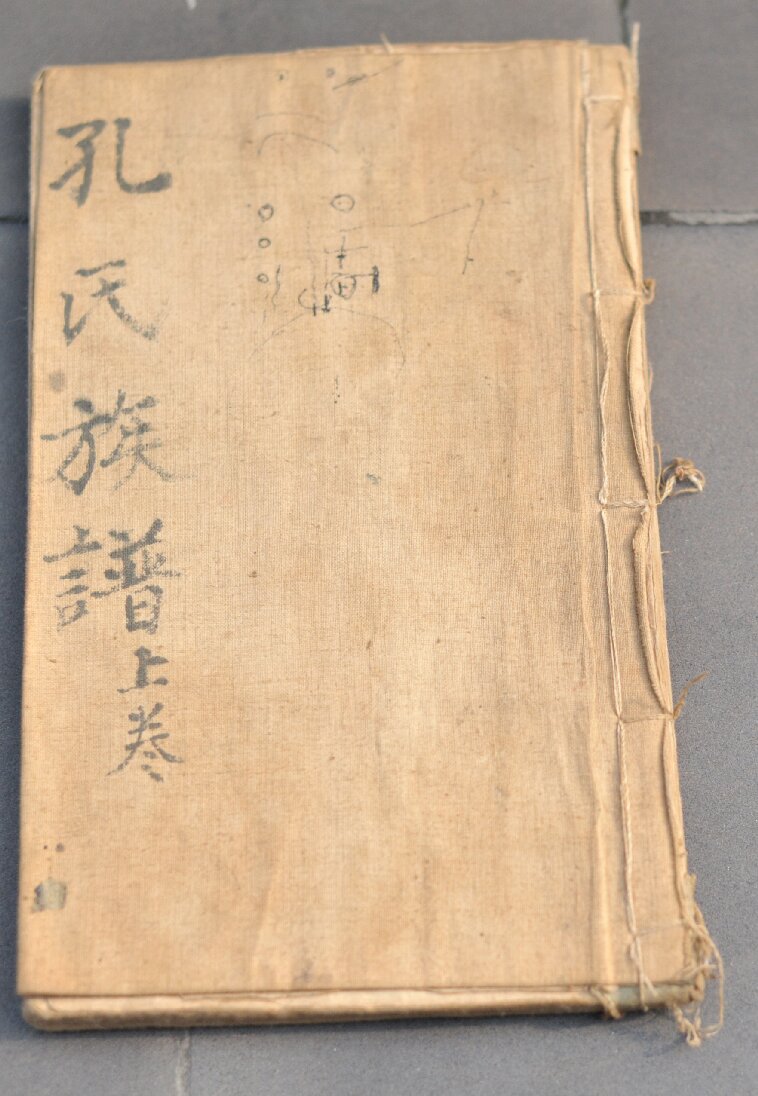 孔氏族譜上卷